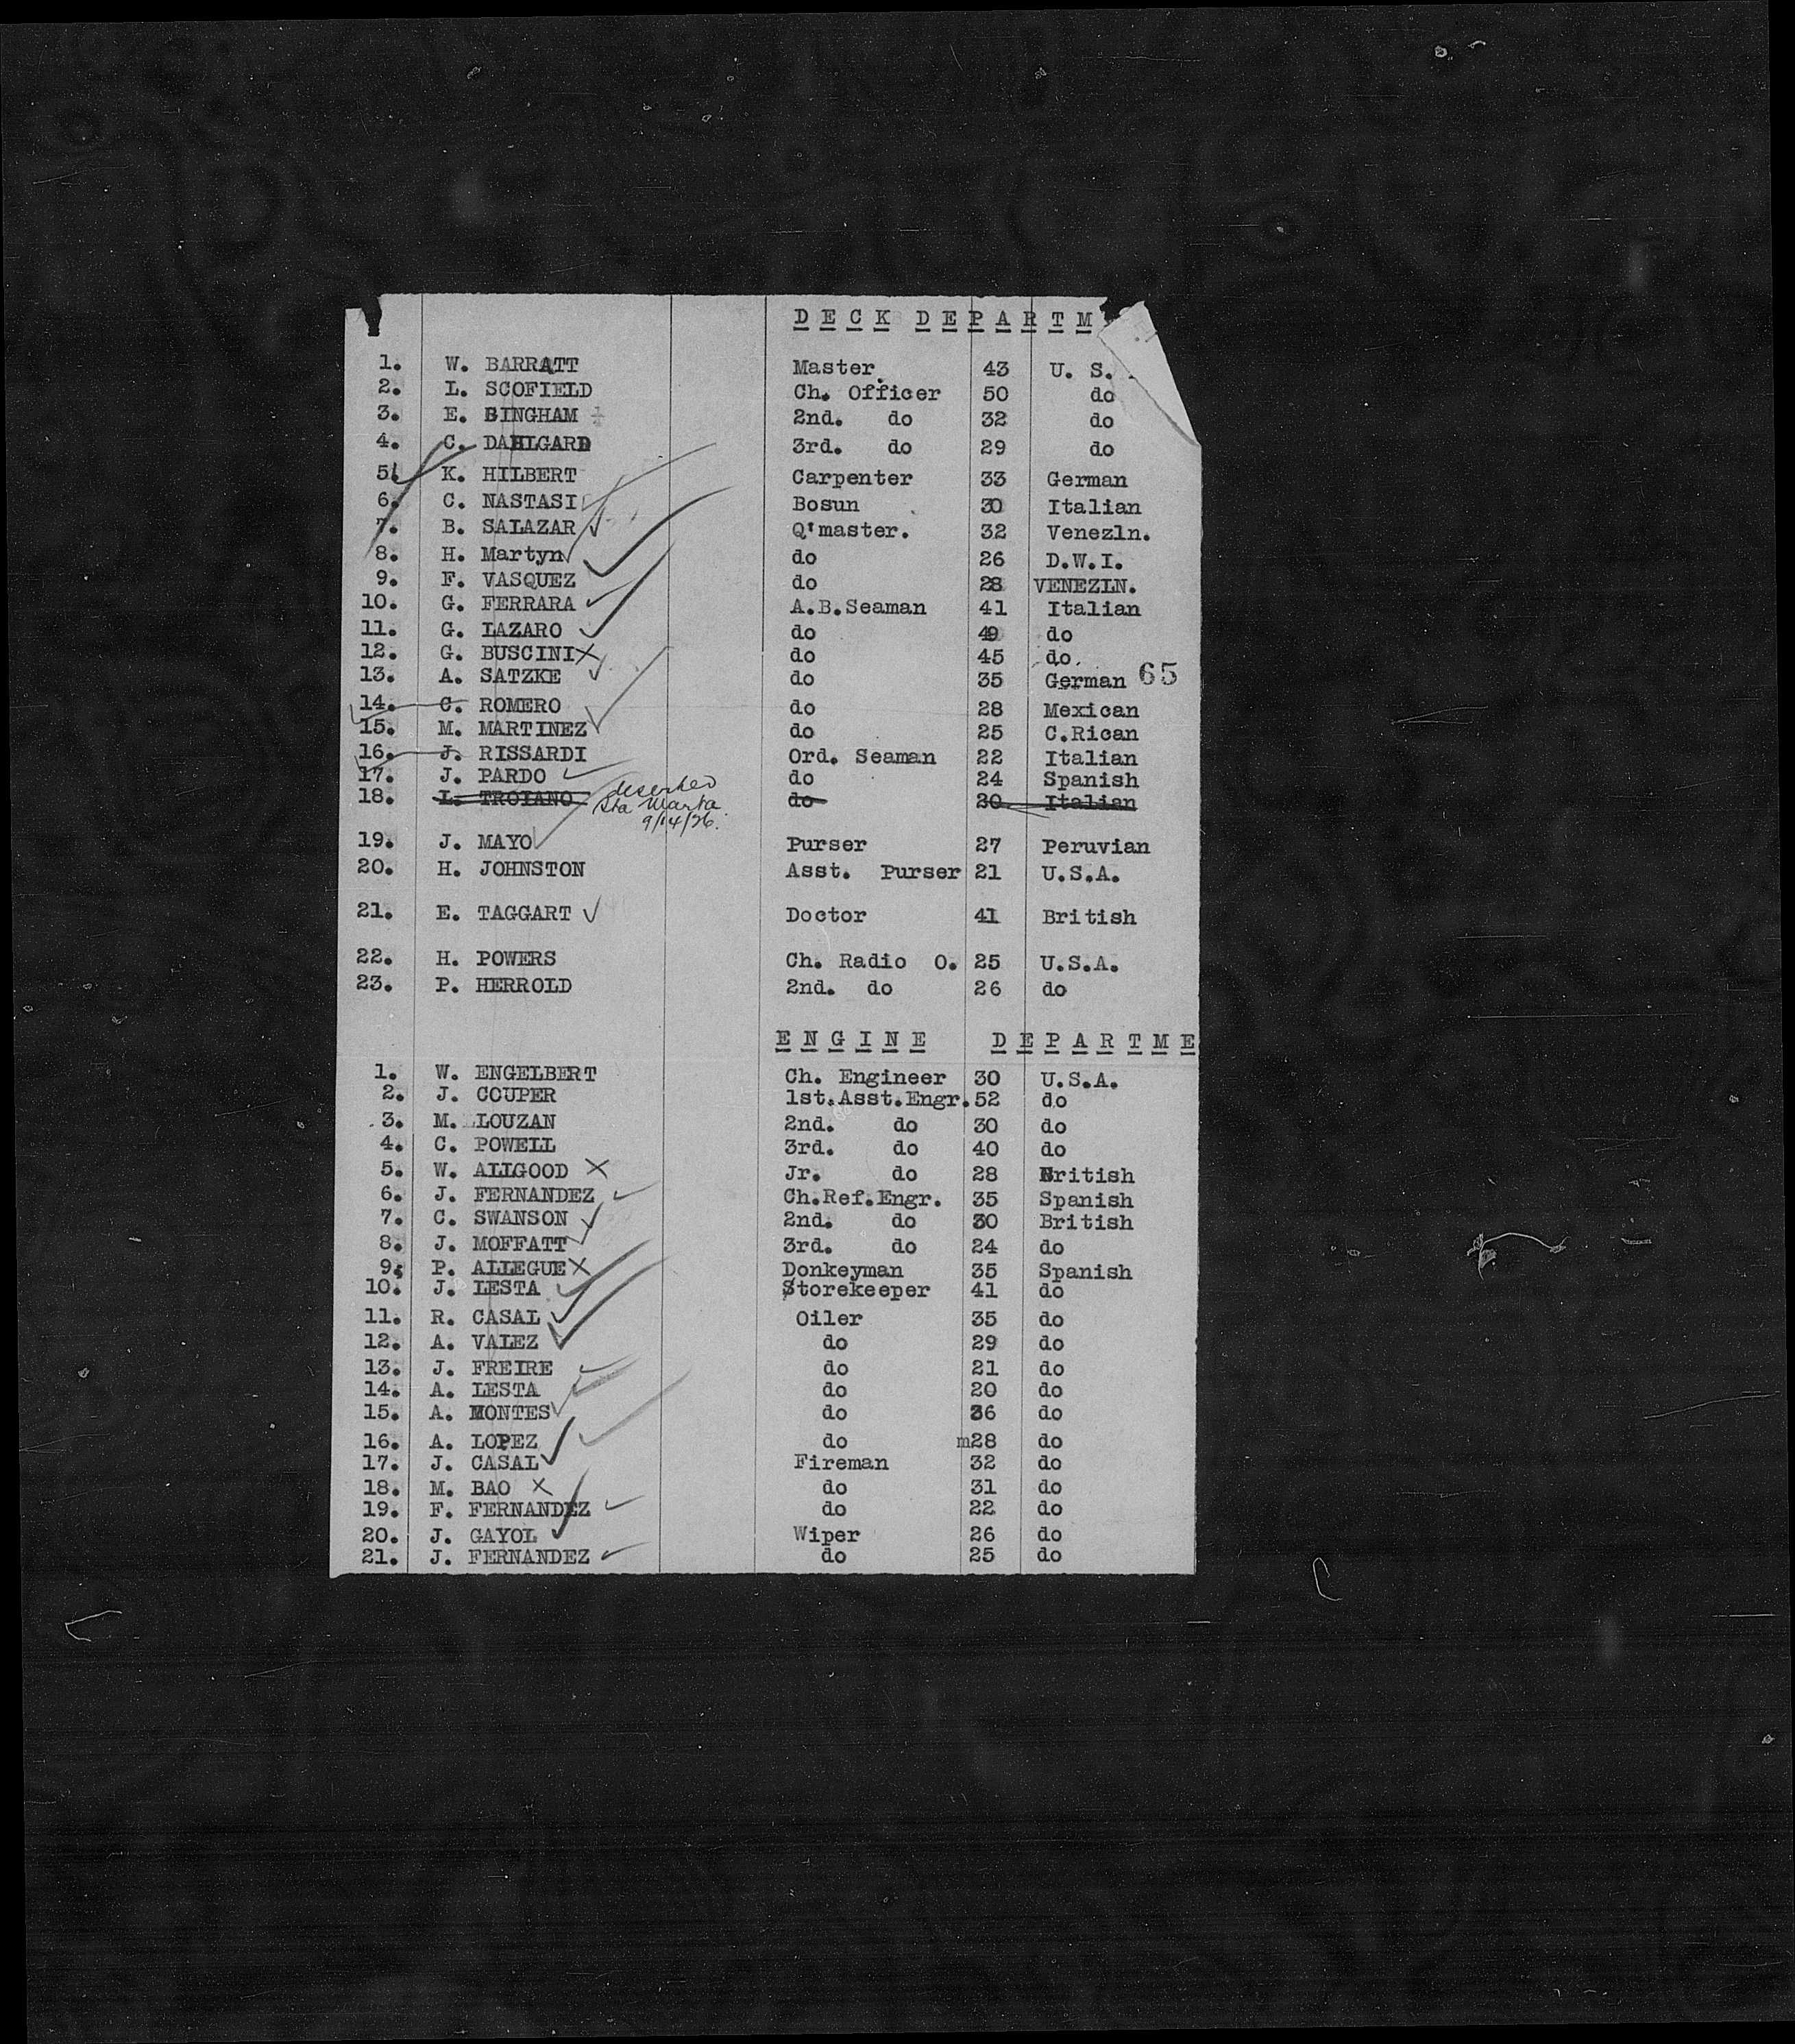 DECK DEPARTM
1. W. BARRATT Master 43 U. S.
2. L. SCOFIELD Ch. Officer 50 do
3. E. BINGHAM 2nd. do 32 do
4. C. DAHLGARD 3rd. do 29 do
5. K. HILBERT Carpenter 33 German
6. C. NASTASI Bosun 30 Italian
7. B. SALAZAR Q'master. 32 Venezln.
8. H. Martyn do 26 D.W.I.
9. F. VASQUEZ do 28 VENEZLN.
10. G. FERRARA A.B.Seaman 41 Italian
11. G. LAZARO do 49 do
12. G. BUSCINI do 45 do.
13. A. SATZKE do 35 German 65
14. C. ROMERO do 28 Mexican
15. M. MARTINEZ do 25 C.Rican
16. J. RISSARDI Ord. Seaman 22 Italian
17. J. PARDO do 24 Spanish
18. L. TROIANO deserted Sta Marta 9/14/26. do 20 Italian
19. J. MAYO Purser 27 Peruvian
20. H. JOHNSTON Asst. Purser 21 U.S.A.
21. E. TAGGART Doctor 41 British
22. H. POWERS Ch. Radio O. 25 U.S.A.
23. P. HERROLD 2nd. do 26 do
ENGINE DEPARTME
1. W. ENGELBERT Ch. Engineer 30 U.S.A.
2. J. COUPER 1st.Asst.Engr. 52 do
3. M. LOUZAN 2nd. do 30 do
4. C. POWELL 3rd. do 40 do
5. W. ALLGOOD Jr. do 28 British
6. J. FERNANDEZ Ch.Ref.Engr. 35 Spanish
7. C. SWANSON 2nd. do 30 British
8. J. MOFFATT 3rd. do 24 do
9. P. ALLEGUE Donkeyman 35 Spanish
10. J. LESTA Storekeeper 41 do
11. R. CASAL Oiler 35 do
12. A. VALEZ do 29 do
13. J. FREIRE do 21 do
14. A. LESTA do 20 do
15. A. MONTES do 36 do
16. A. LOPEZ do m28 do
17. J. CASAL Fireman 32 do
18. M. BAO do 31 do
19. F. FERNANDEZ do 22 do
20. J. GAYOL Wiper 26 do
21. J. FERNANDEZ do 25 do